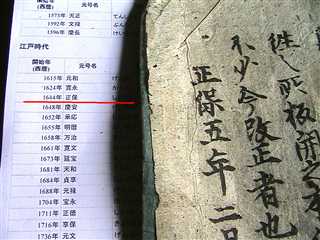 開始年
(西暦)
元号名
1573年 天正
てん
1592年 文禄
ぶん
1596年 慶長
江戸時代
開始年
(西暦)
元号名
1615年 元和
1624年 寛永
1644年 正保
1648年 慶安
1652年 承応
1655年 明暦
1658年 万治
1661年 寛文
1673年 延宝
1681年 天和
1684年 貞享
1688年 元禄
1704年 宝永
1711年 正徳
1716年 享保
1736年 元文
板
不少今改正者也
正保五年二